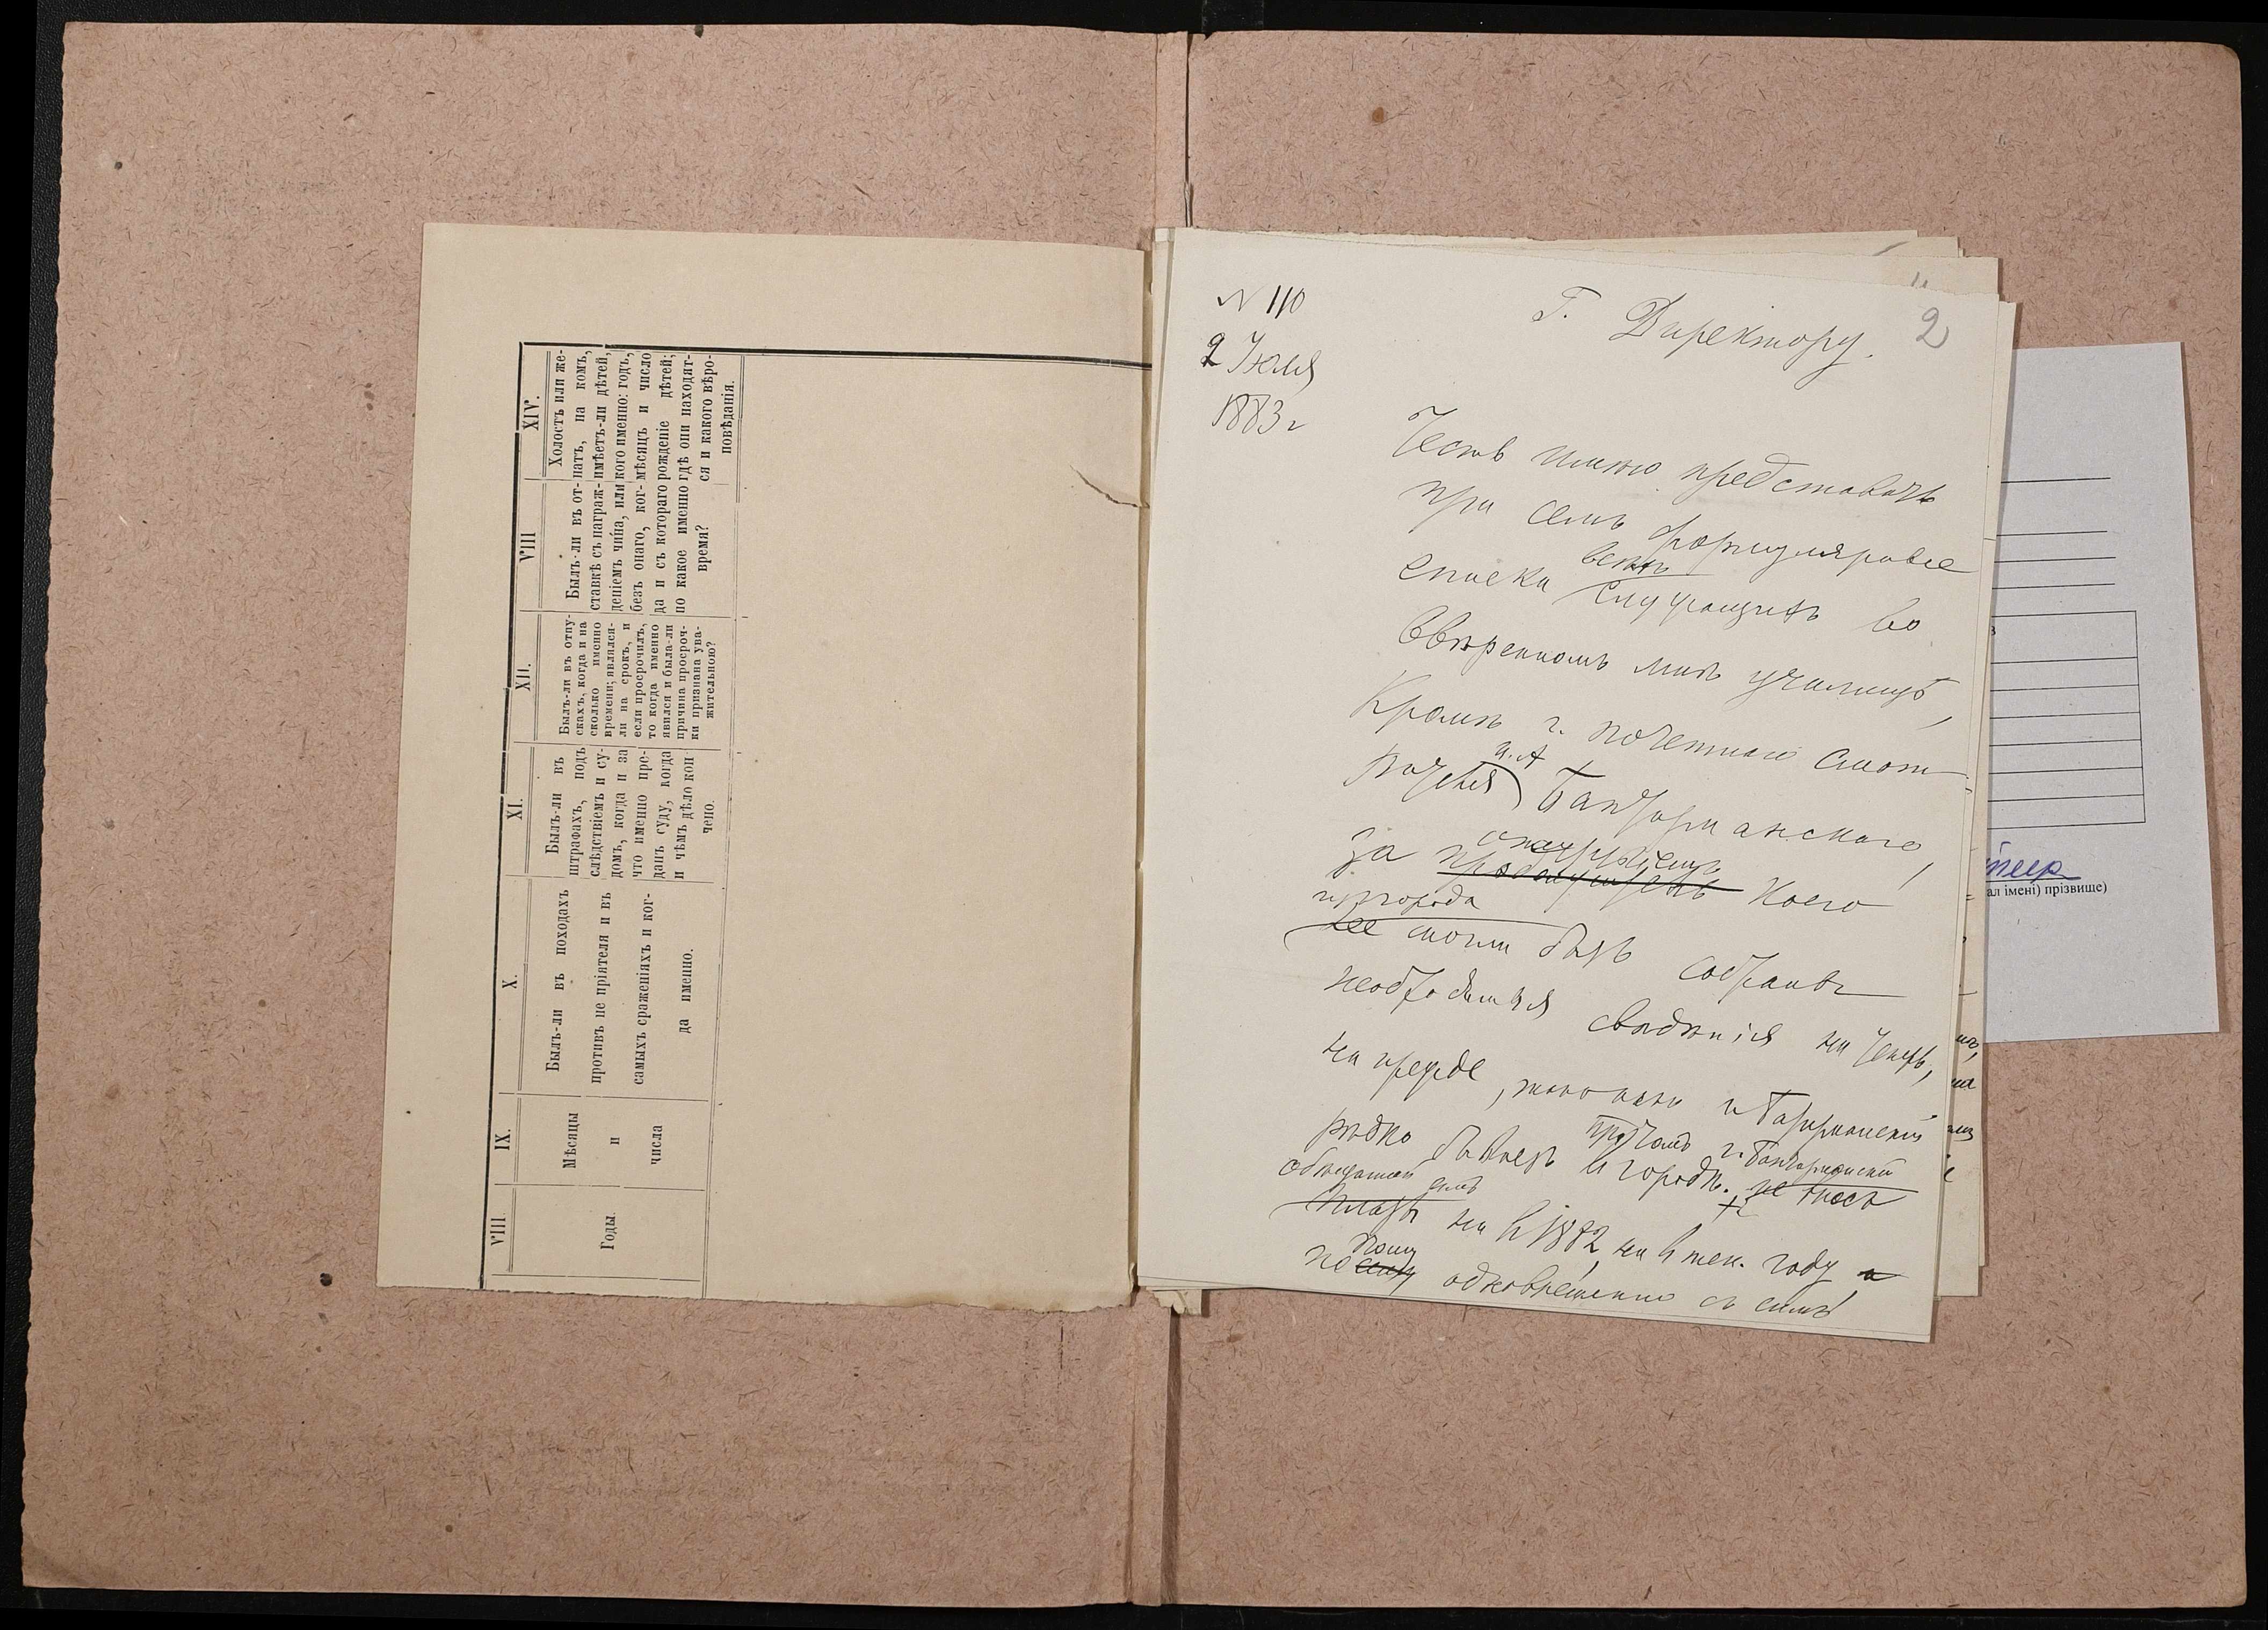 VIII.
Годы.
IX.
Мѣсяцы
и
числа
X.
Былъ-ли въ походахъ
противъ непріятеля и въ
самыхъ сраженіяхъ и ког-
да именно.
XI.
Былъ-ли въ
штрафахъ, подъ
слѣдствіемъ и су-
домъ, когда и за
что именно пре-
данъ суду, когда
и чѣмъ дѣло кон
чено.
XII.
Былъ-ли въ отпу-
скахъ, когда и на
сколько именно
времени; являлся-
ли на срокъ, и
если просрочилъ,
то когда именно
явился и была-ли
причина просроч-
ки признана ува-
жительною?
VIII
Былъ-ли въ от-
ставкѣ съ награж-
деніемъ чина, или
безъ онаго, ког-
да и съ котораго
по какое именно
время?
XIV.
Холостъ или же-
натъ, на комъ,
имѣетъ-ли дѣтей,
кого именно: годъ,
мѣсяцъ и число
рожденіе дѣтей;
гдѣ они находят-
ся и какого вѣро-
повѣданія.
N 110
2 Июля
1883 г
Г. Директору.
2
Честь имѣю представить
при семъ формулярные
списки всѣхъ служащихъ во
ввѣренномъ мнѣ училищѣ,
Кромѣ г. почетнаго Смот-
рителя
за отсутствіемъ коего
изъ города
могли быть собраны
необходимыя свѣдѣнія ни теперь,
ни прежде,
рѣдко бываетъ въ городѣ.
ни въ 1882, ни въ тек. году
одновременно съ симъ
ал імені) прізвище)